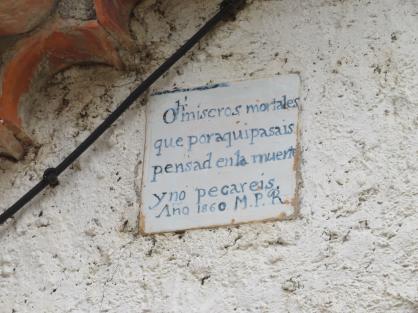 Oh miseros mortales
que por aqui pasais
pensad en la muerte
y no pecareis.
Año 1860 M.P.R.